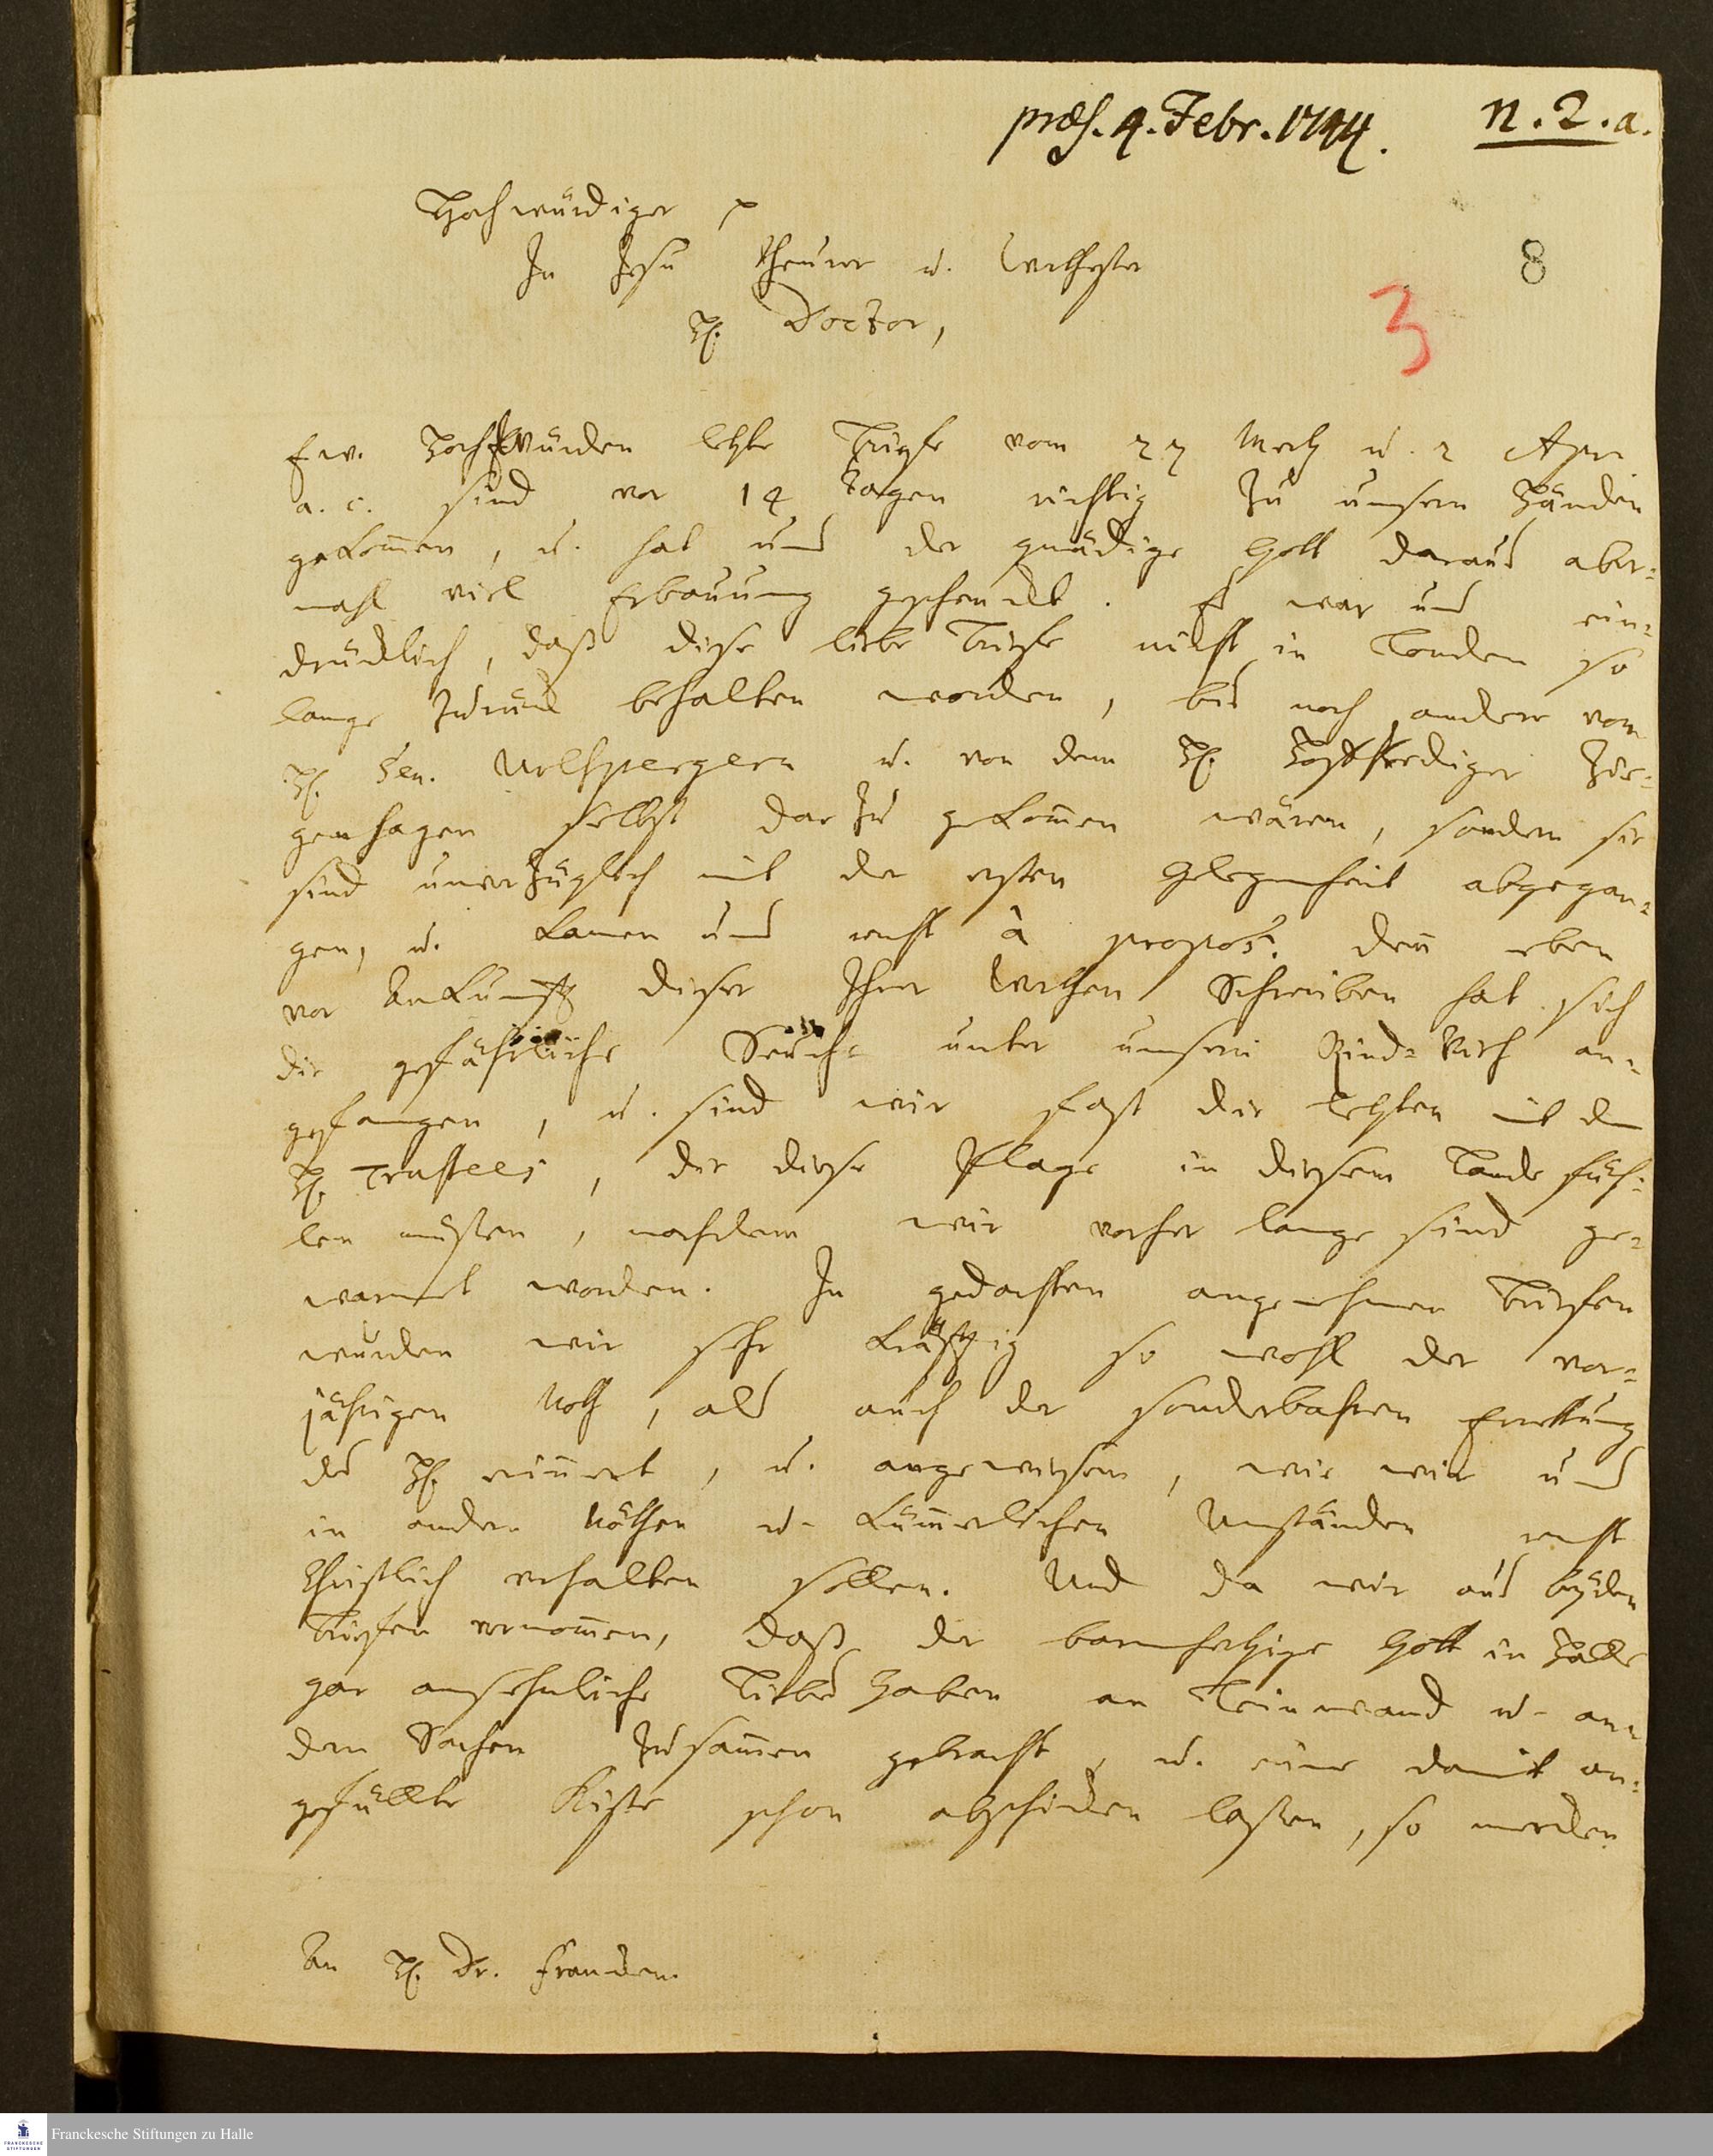 præs. 4. Febr. 1744. n. 2. a.
Hochwürdiger p
In Jesu theurer u. Werthester
H. Doctor,
8
3
Ew. HochWürden letzte Briefe vom 27 Mertz u. 2 Apr.
a. c. sind vor 14 Tagen richtig zu unsern Händen
gekom̄en, u. hat uns der gnädige Gott daraus aber-
mahl viel Erbauung geschenckt. Es war uns ein-
drücklich, daß diese liebe Briefe nicht in London so
lange zurück behalten worden, bis noch andere von
H. Sen. Urlspergern u. von dem H. Hofprediger Zie-
genhagen selbst darzu gekom̄en wären, sondern sie
sind unverzüglich mit der ersten Gelegenheit abgegan-
gen, u. kamen uns recht à propos. Den̄ eben
vor Ankunfft dieser Ihrer werthen Schreiben hat sich
die gefährliche Seuche unter unserm Rind-Vieh an-
gefangen, u. sind wir fast die letzten mit den
H. Trustees, die diese Plage in diesem Lande füh-
len müßen, nachdem wir vorher lange sind ge-
warnet worden. In gedachten angenehmen Briefen
wurden wir sehr kräfftig so wohl der vor-
jährigen Noth, als auch der sonderbahren Errettung
des H. erin̄ert, u. angewiesen, wie wir uns
in andern Nöthen u. küm̄erlichen Umständen recht
Christlich verhalten sollen. Und da wir aus beyden
Briefen vernom̄en, daß der barmhertzige Gott in Halle
gar ansehnliche Liebes Gaben an Leinwand u. an-
dern Sachen zusam̄en gebracht, u. eine damit an-
gefüllte Kiste schon abschicken laßen, so werden
An H. Dr. Francken.
Franckesche Stiftungen zu Halle